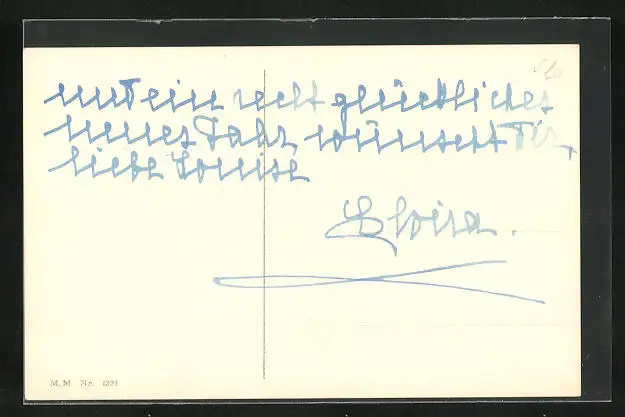 und ein recht glückliches
neues Jahr, wünscht Dir,
liebe Louise
Elvira.
M. M Nr. 1221